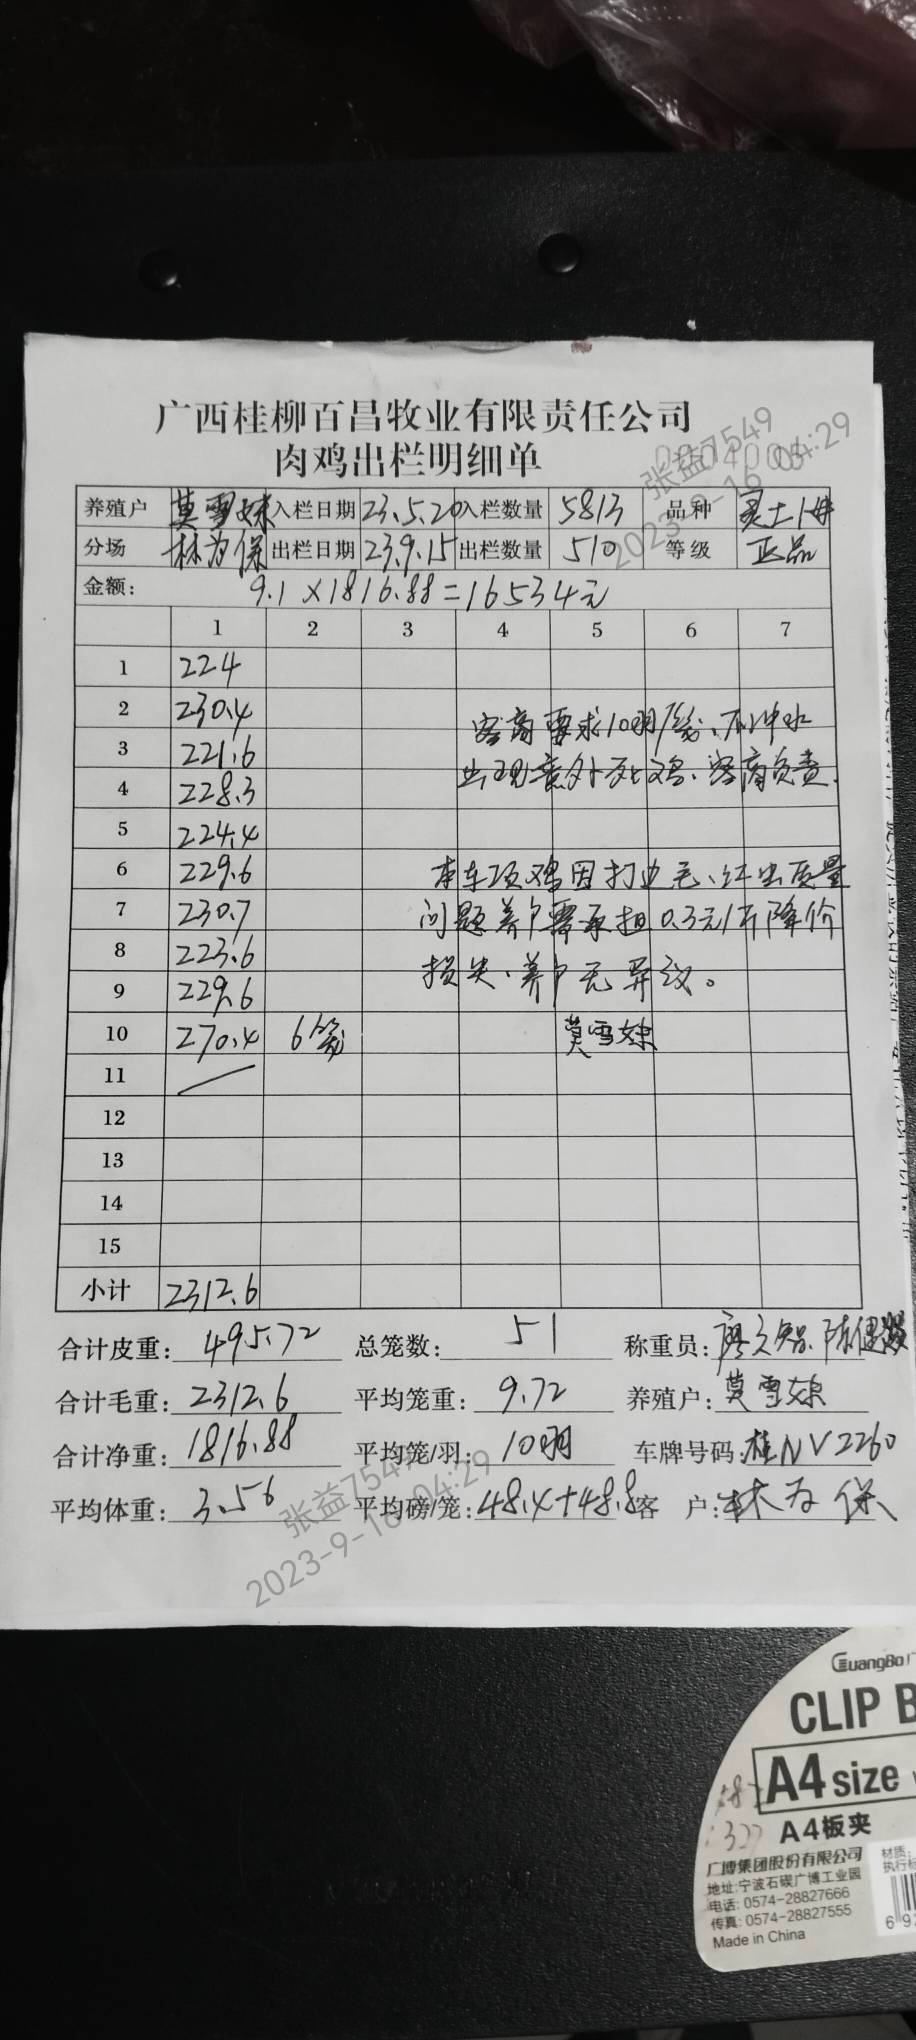 广西桂柳百昌牧业有限责任公司
肉鸡出栏明细单
张益7549
2023-9-16 04:29
养殖户 莫雪妹 入栏日期 23.5.20 入栏数量 5813 品种 灵土1母
分场 林为保 出栏日期 23.9.15 出栏数量 510 等级 正品
金额: 9.1×1816.88=16534元
1 2 3 4 5 6 7
1 224
2 230.4
3 221.6
4 228.3
5 224.4
6 229.6
7 230.7
8 223.6
9 229.6
10 270.4 6笼
11
12
13
14
15
小计 2312.6
客商要求10羽/笼、不冲水
出现意外死鸡、客商负责.
本车项鸡因打边毛、红出质量
问题养户需承担0.3元/斤降价
损失、养户无异议。
莫雪妹
合计皮重: 495.72 总笼数: 51 称重员: 廖之智.
合计毛重: 2312.6 平均笼重: 9.72 养殖户: 莫雪妹
合计净重: 1816.88 平均笼/羽: 10羽 车牌号码: 桂NV2260
平均体重: 3.56 平均磅/笼: 48.4+48.8 客 户: 林为保
张益7549
2023-9-16 04:29
GuangBo
CLIP B
A4 size
327
A4板夹
广博集团股份有限公司
地址:宁波石碶广博工业园
电话: 0574-28827666
传真: 0574-28827555
Made in China
材质:
执行标
6 92